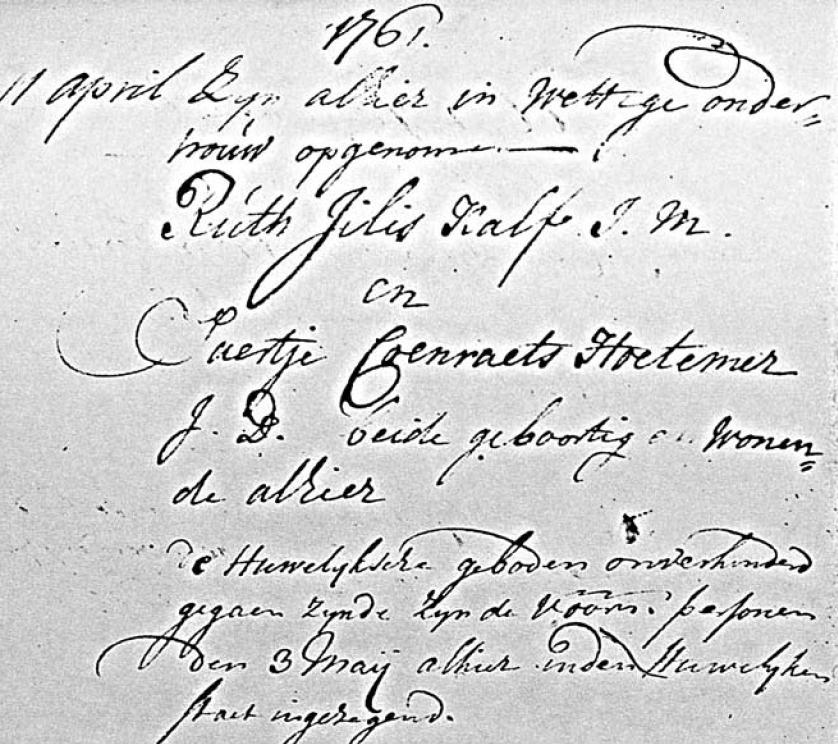 1761.
11 april Zyn alhier in Wettige onder=
trouw opgenome
Ruth Jilis Kalf J. M.
en
Coenraets Hoetemer
J. D. beide geboortig en Wonen=
de alhier
de Huwelyksche geboden onverhinderd
gegaen Zynde Zyn de Voors: personen
den 3 Maij alhier inden Huwelyken
staet ingezegend.